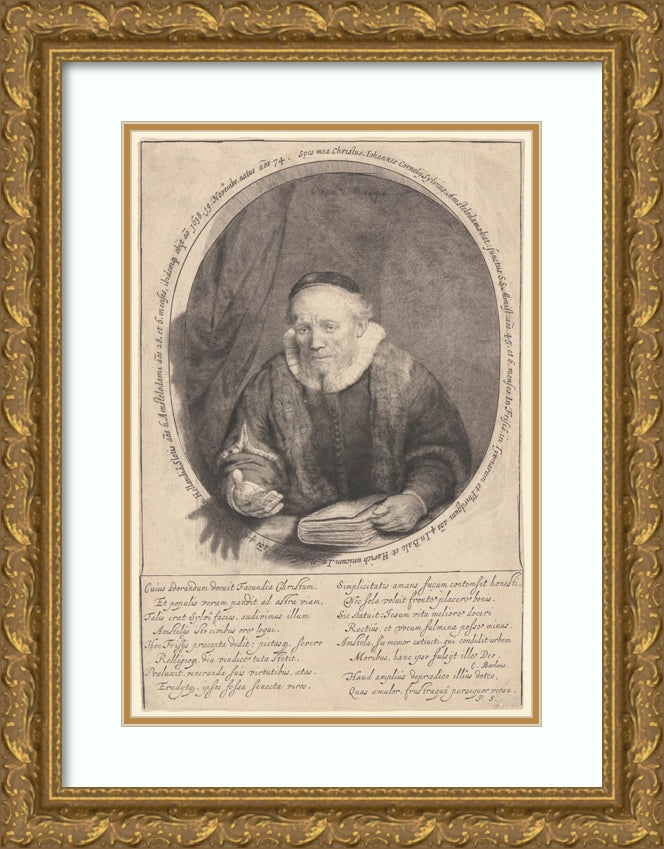 Spes mea Christus. Iohannes Cornelij Sylvius, Amstelodamobat: functus S.S. Minist: aōs 45. et 6. menses. In Frisiâ in Tÿemarum et Phirdgum aōs 4. In Balc et Harich unicum. In
aōs 4. Hollandiâ Slotis aōs 6. Amstelodami aōs 28. et 6. menses, ibidemq obijt aō 1638. 19. Novembr. natus aōs 74.
Cuius adorandum docuit Facundia Christum.
Et populis veram pandit ad astra viam,
Talis erat Sylvî facies. audivimus illum
Amstelijs isto civibus ore loqui.
Hoc Frisijs præcepta dedit; pietasq; severo
Relligioq; diu vindice tuta stetit.
Præluxit, veneranda suis virtutibus, ætas.
Erudijtq; ipsos fessa senecta viros.
Simplicitatis amans fucum contemsit honesti,
Nec sola voluit fronte placere bonis.
Sic statuit: Iesum vita meliore doceri
Rectiùs, et vocum fulmina posse minus.
Amstela, sis memor extincti qui condidit urbem
Moribus, hanc ipso fulsijt ille Deo.
C. Barlæus.
Haud amplius deprædico illius dotes,
Quas æmulor, frustraque persequor versu.
P. S.